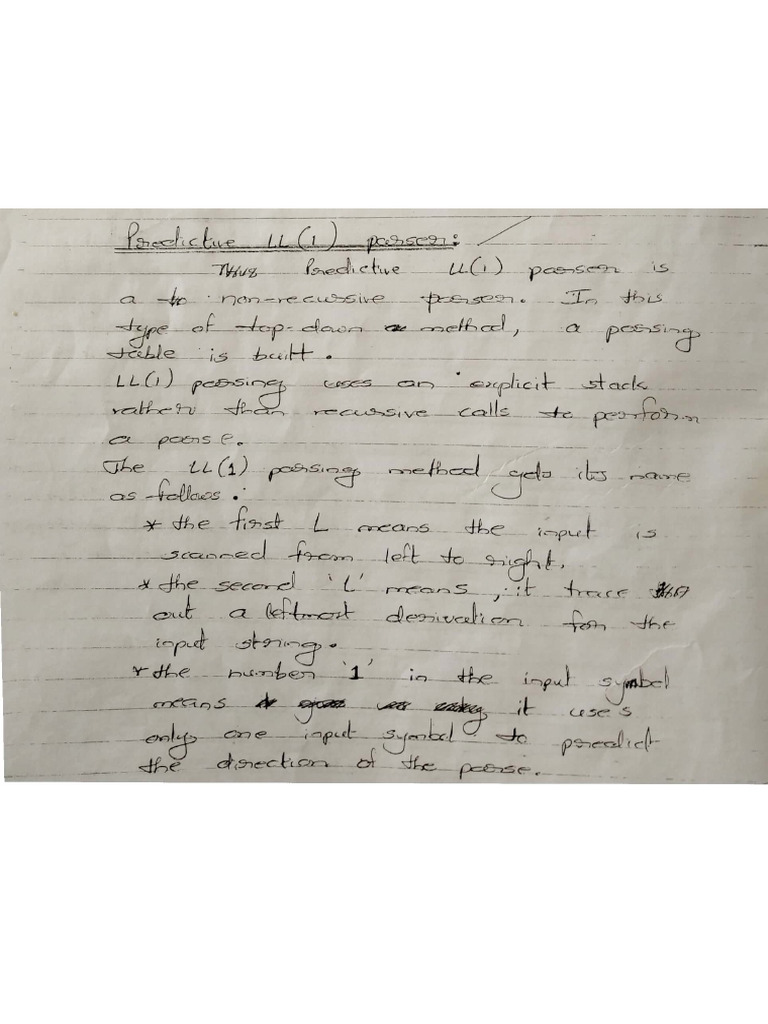 Predictive LL(1) parser:
Thus Predictive LL(1) parser is
a to non-recursive parser. In this
type of top-down a method, a parsing
table is built.
LL(1) parsing uses an explicit stack
rather than recursive calls to perform
a parse.
The LL(1) parsing method gets its name
as follows:
* the first L means the input is
scanned from left to right.
* the second 'L' means, it trace
out a leftmost derivation for the
input string.
* the number '1' in the input symbol
means it uses
only one input symbol to predict
the direction of the parse.